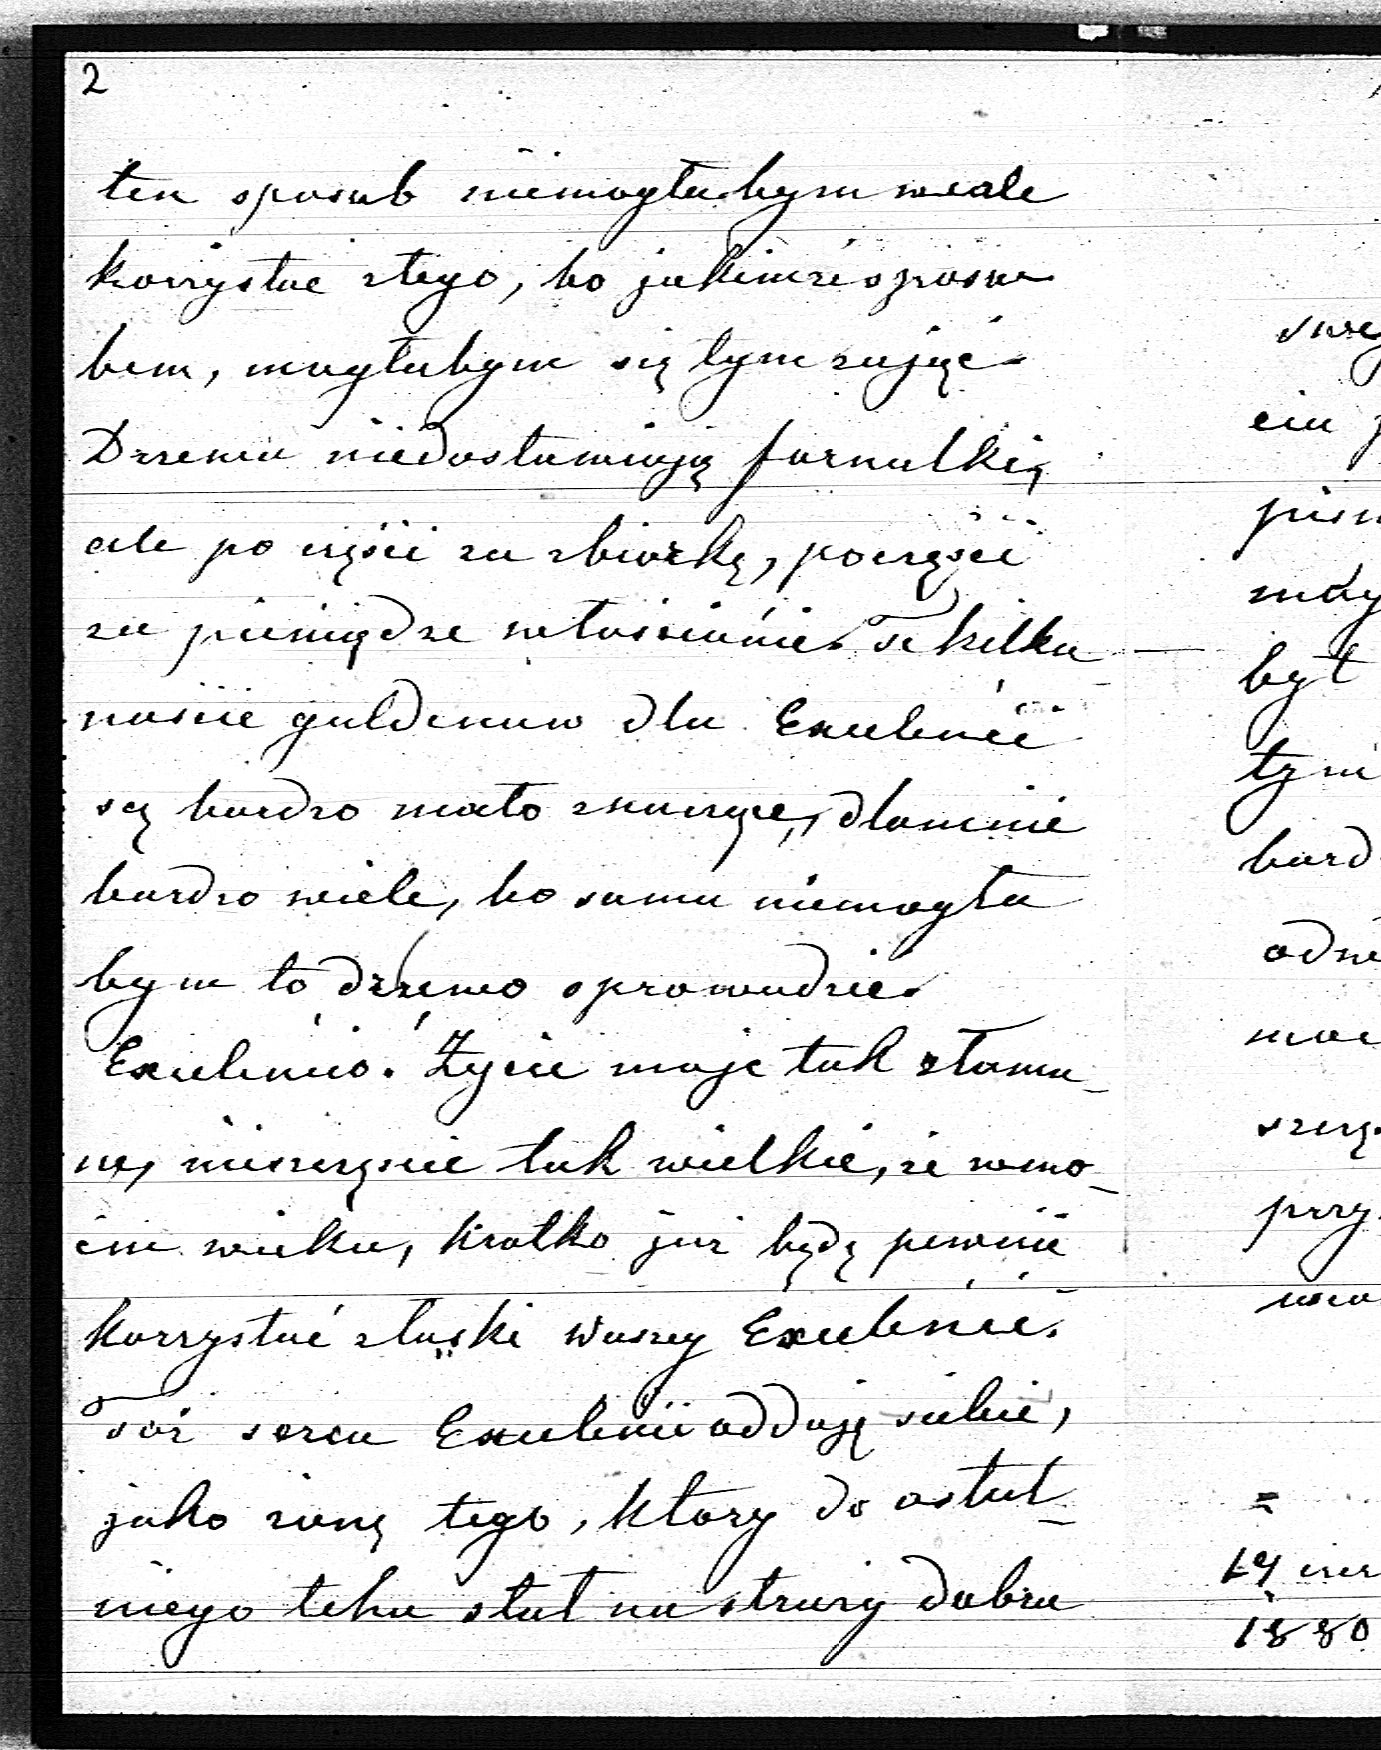 2
ten sposub niemogłabym wcale
korzystać ztego, bo jakimże sposu
bem, mogłabym się tym zająć.
Drzewa niedostawiają fornalki,
ale po częsci za zbiorkę, poczęsci
za pieniądze włościanie. Te kilka_
nascie guldenuw dla Excelencii
są bardzo mało znaczące, dlamnie
bardzo wiele, bo sama niemogła
bym to drzewo sprowadzić.
Excelencio! Życie moje tak złama_
ne, nieszczęscie tak wielkie, że wmo_
im wieku, krotko już będę pewnie
korzystać złaski waszey Excelencii.
Toż sercu Excelencii oddaję siebie,
jako żonę tego, ktory do ostat_
niego tchu stał na straży dobra
swe
ciu
pism
mdy
był
tym
bard
odne
moe
szczę
przy
=
19 czer
1880